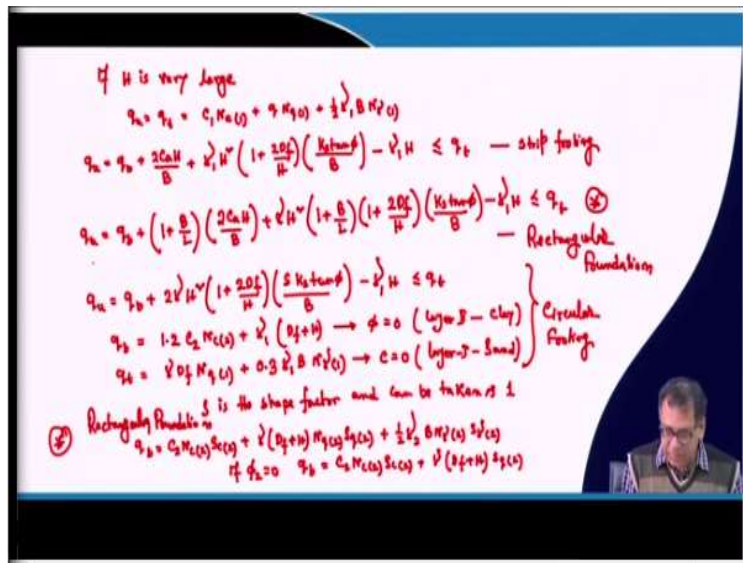 If H is very large
qu = qt = C1 Nc(1) + q Nq(1) + ½ γ1 B Nγ(1)
qu = qb + 2CaH/B + γ1 H² (1 + 2Df/H) (Ks tanϕ/B) - γ1 H ≤ qt — strip footing
qu = qb + (1 + B/L) (2CaH/B) + γ H² (1 + B/L) (1 + 2Df/H) (Ks tanϕ/B) - γ1 H ≤ qt *
— Rectangular Foundation
qu = qb + 2γ H² (1 + 2Df/H) (S Ks tanϕ/B) - γ1 H ≤ qt
qb = 1.2 C2 Nc(2) + γ1 (Df+H) → ϕ=0 (layer-II - clay)
qt = γ Df Nq(1) + 0.3 γ1 B Nγ(1) → C=0 (layer-I - Sand)
Circular Footing
S is the shape factor and can be taken as 1
* Rectangular Foundation
qb = C2 Nc(2) Sc(2) + γ (Df+H) Nq(2) Sq(2) + ½ γ2 B Nγ(2) Sγ(2)
If ϕ2=0 qb = C2 Nc(2) Sc(2) + γ (Df+H) Sq(2)